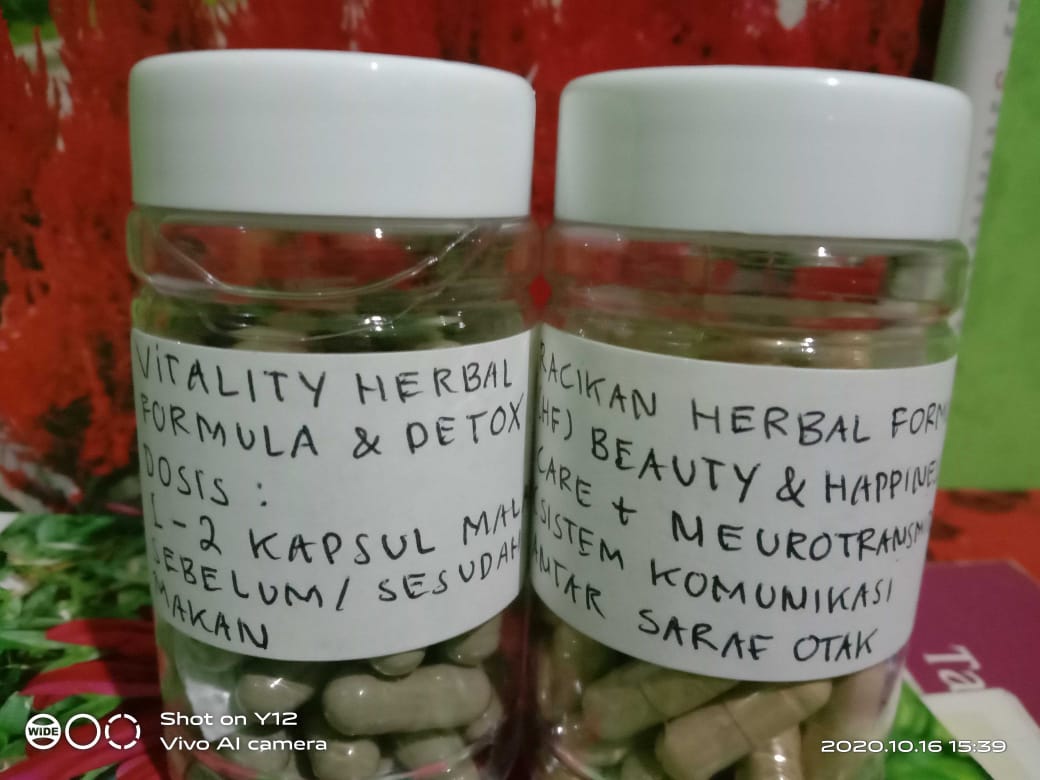 VITALITY HERBAL
FORMULA & DETOX
DOSIS :
1-2 KAPSUL MAL
SEBELUM/ SESUDAH
MAKAN
RACIKAN HERBAL FORM
HF) BEAUTY & HAPPINE
CARE + NEUROTRANSM
SISTEM KOMUNIKASI
ANTAR SARAF OTAK
Ta
WIDE
Shot on Y12
Vivo AI camera
2020.10.16 15:39